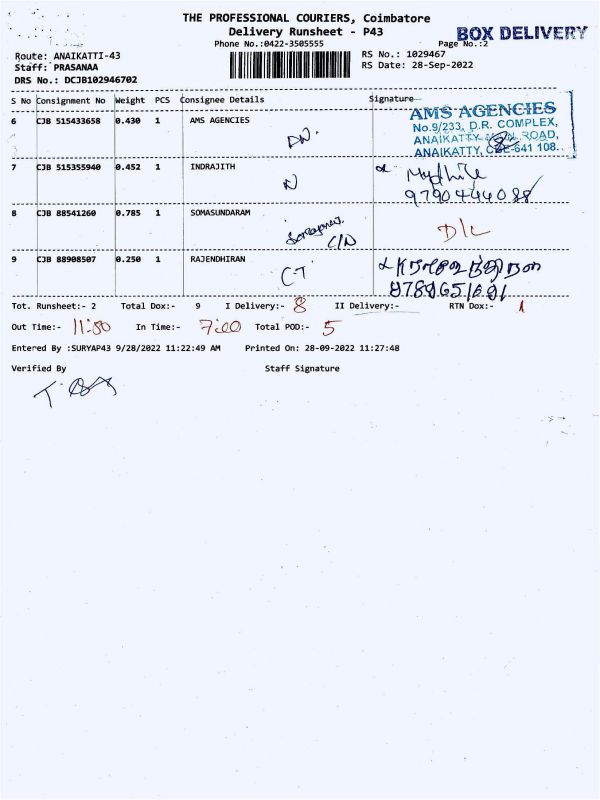 THE PROFESSIONAL COURIERS, Coimbatore
Delivery Runsheet - P43
BOX DELIVERY
Phone No.:0422-3505555
Page No.:2
Route: ANAIKATTI-43
RS No.: 1029467
Staff: PRASANAA
RS Date: 28-Sep-2022
DRS No.: DCJB102946702
S No Consignment No Weight PCS Consignee Details Signature
6 CJB 515433658 0.430 1 AMS AGENCIES
DN.
AMS AGENCIES
No.9/233, D.R. COMPLEX,
ANAIKATTY MAIN ROAD,
ANAIKATTY, CBE-641 108.
7 CJB 515355940 0.452 1 INDRAJITH
N
9790444088
8 CJB 88541260 0.785 1 SOMASUNDARAM
C/N
D/L
9 CJB 88908507 0.250 1 RAJENDHIRAN
CT
Tot. Runsheet:- 2 Total Dox:- 9 I Delivery:- 8 II Delivery:- RTN Dox:- 1
Out Time:- 11:50 In Time:- 7:00 Total POD:- 5
Entered By :SURYAP43 9/28/2022 11:22:49 AM Printed On: 28-09-2022 11:27:48
Verified By Staff Signature